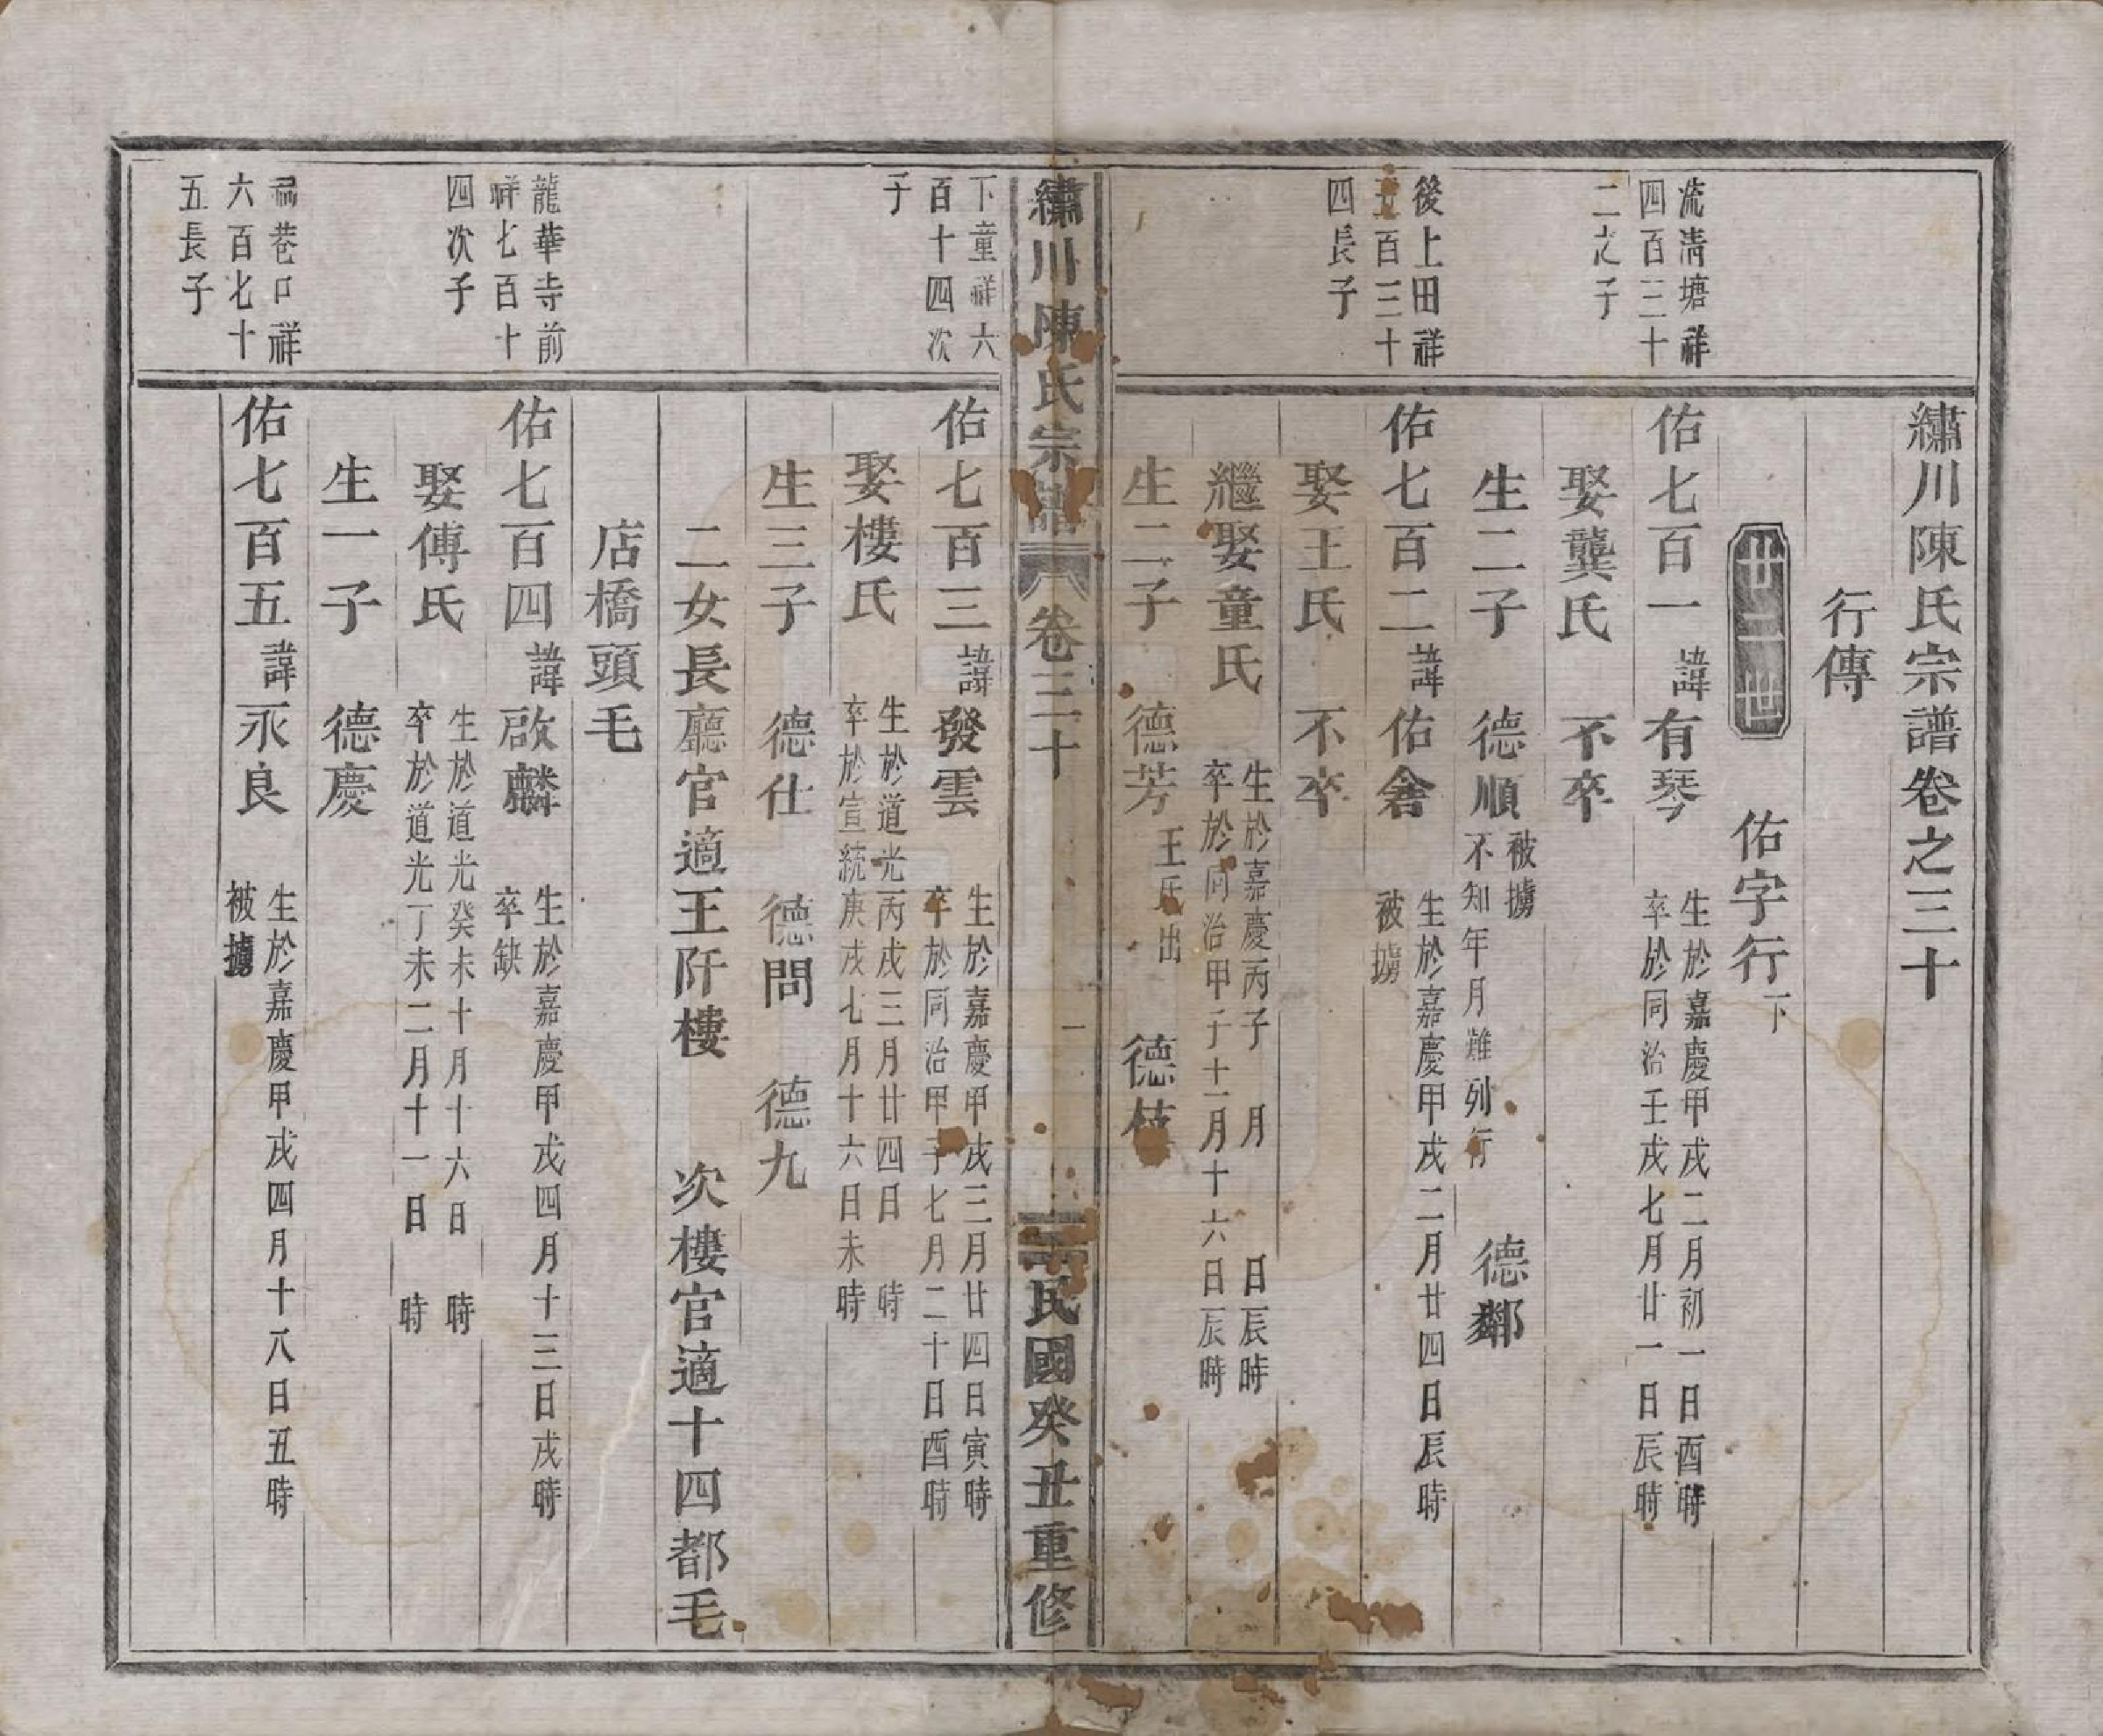 繡川陳氏宗譜卷之三十
行傳
卅二世 佑字行下
流清塘祥
四百三十
二之子
佑七百一諱有琴
生於嘉慶甲戌二月初一日酉時
卒於同治壬戌七月廿一日辰時
娶龔氏 不卒
生二子 德順
被擄
不知年月難列行
德鄰
後上田祥
五百三十
四長子
佑七百二諱佑禽
生於嘉慶甲戌二月廿四日辰時
被擄
娶王氏 不卒
繼娶童氏
生於嘉慶丙子 月 日辰時
卒於同治甲子十一月十六日辰時
生二子 德芳 王氏出 德枝
繡川陳氏宗譜 卷三十 一 民國癸丑重修
下童祥六
百十四次
子
佑七百三諱發雲
生於嘉慶甲戌三月廿四日寅時
卒於同治甲子七月二十日酉時
娶樓氏
生於道光丙戌三月廿四日 時
卒於宣統庚戌七月十六日未時
生三子 德仕 德問 德九
二女長廳官適王阡樓 次樓官適十四都毛
店橋頭毛
龍華寺前
祥七百十
四次子
佑七百四諱啟麟
生於嘉慶甲戌四月十三日戌時
卒缺
娶傅氏
生於道光癸未十月十六日 時
卒於道光丁未二月十一日 時
生一子 德慶
祠巷口祥
六百七十
五長子
佑七百五諱永良
生於嘉慶甲戌四月十八日丑時
被擄